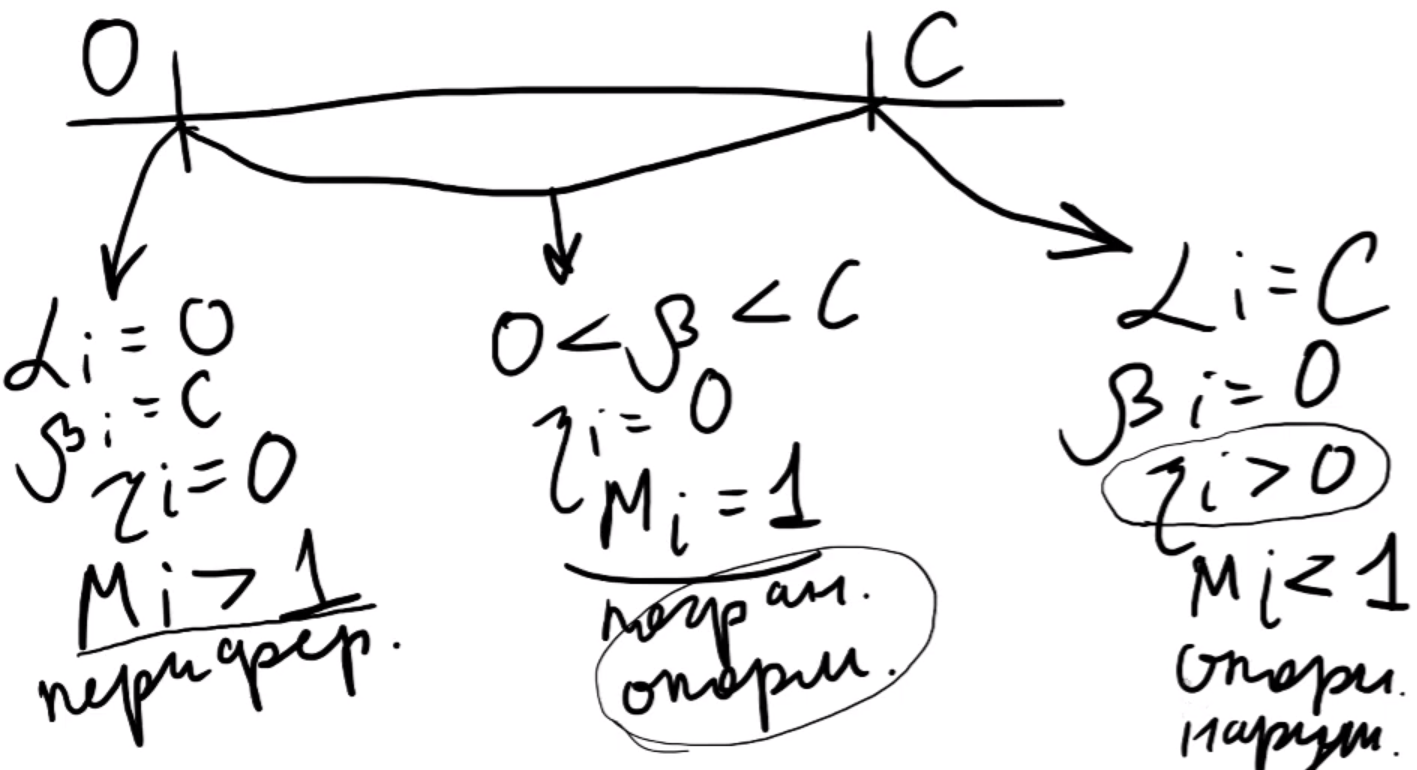 0 C
αi = 0
βi = C
ηi = 0
Mi > 1
перифер.
0 < β < C
ηi = 0
Mi = 1
погран.
опорн.
αi = C
βi = 0
ηi > 0
Mi < 1
опорн.
наруш.